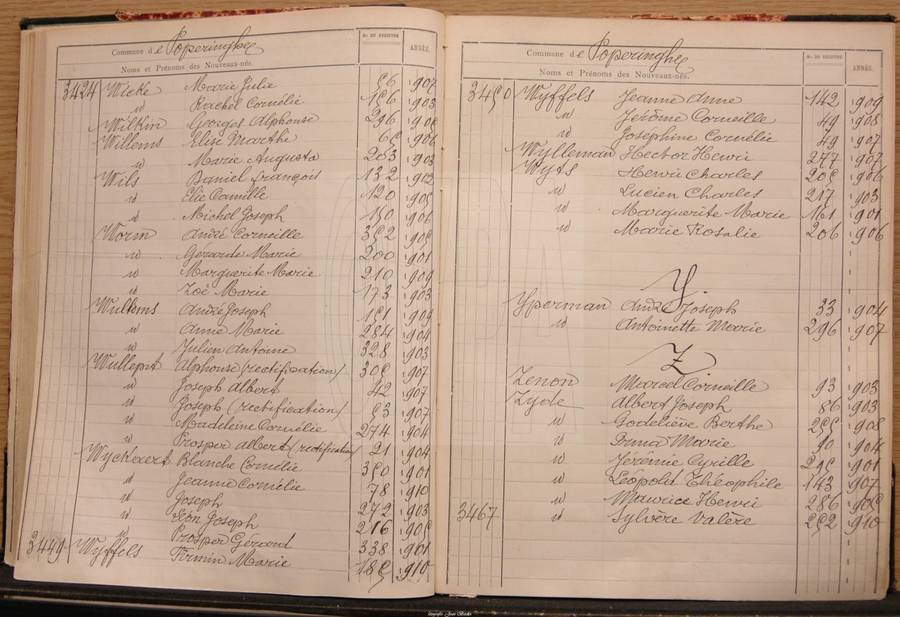 Commune de Poperinghe
Nos DU REGISTRE
ANNÉE.
Noms et Prénoms des Nouveaux-nés.
3424 Wieke Marie Julie 56 1907
id Rachel Cornélie 156 1903
Wilkin Georges Alphonse 296 190
Willems Elise Marthe 1906
id Marie Augusta 203 1903
Wils Daniel François 132 1902
id Elie Camille 120 1905
id Michel Joseph 150 1906
Worm André Corneille 352 190
id Gérarde Marie 200 1901
id Marguerite Marie 210 1909
id Zoé Marie 173 1903
Wullems André Joseph 151 1909
id Anne Marie 284 1904
id Julien Antoine 328 1903
Wullepit Alphonse (rectification) 1907
id Joseph Albert 42 1907
id Joseph (rectification) 1907
id Madeleine Cornélie 274 1904
id Prosper Albert (rectification) 21 1904
Wyckaert Blanche Cornélie 350 1901
id Jeanne Cornélie 78 1910
id Joseph 272 1903
id Léon Joseph 216 190
id Prosper Gérard 338 1901
3449 Wyffels Firmin Marie 185 1910
Commune de Poperinghe
Nos DU REGISTRE
ANNÉE.
Noms et Prénoms des Nouveaux-nés.
3450 Wyffels Jeanne Anne 142 1909
id Jérôme Corneille 49 1908
id Josephine Cornélie 49 1907
Wylleman Hector Henri 247 1907
Wyts Henri Charles 205 1906
id Lucien Charles 217 1903
id Marguerite Marie 161 1901
id Marie Rosalie 206 1906
Y.
Yperman André Joseph 33 1904
id Antoinette Marie 296 1907
Z
Zenon Marcel Corneille 93 1903
Zyde Albert Joseph 86 1903
id Godeliève Berthe 255 1908
id Irma Marie 90 1904
id Jérémie Cyrille 295 1901
id Léopold Théophile 143 1907
id Maurice Henri 286 1905
3467 id Sylvère Valère 252 1910